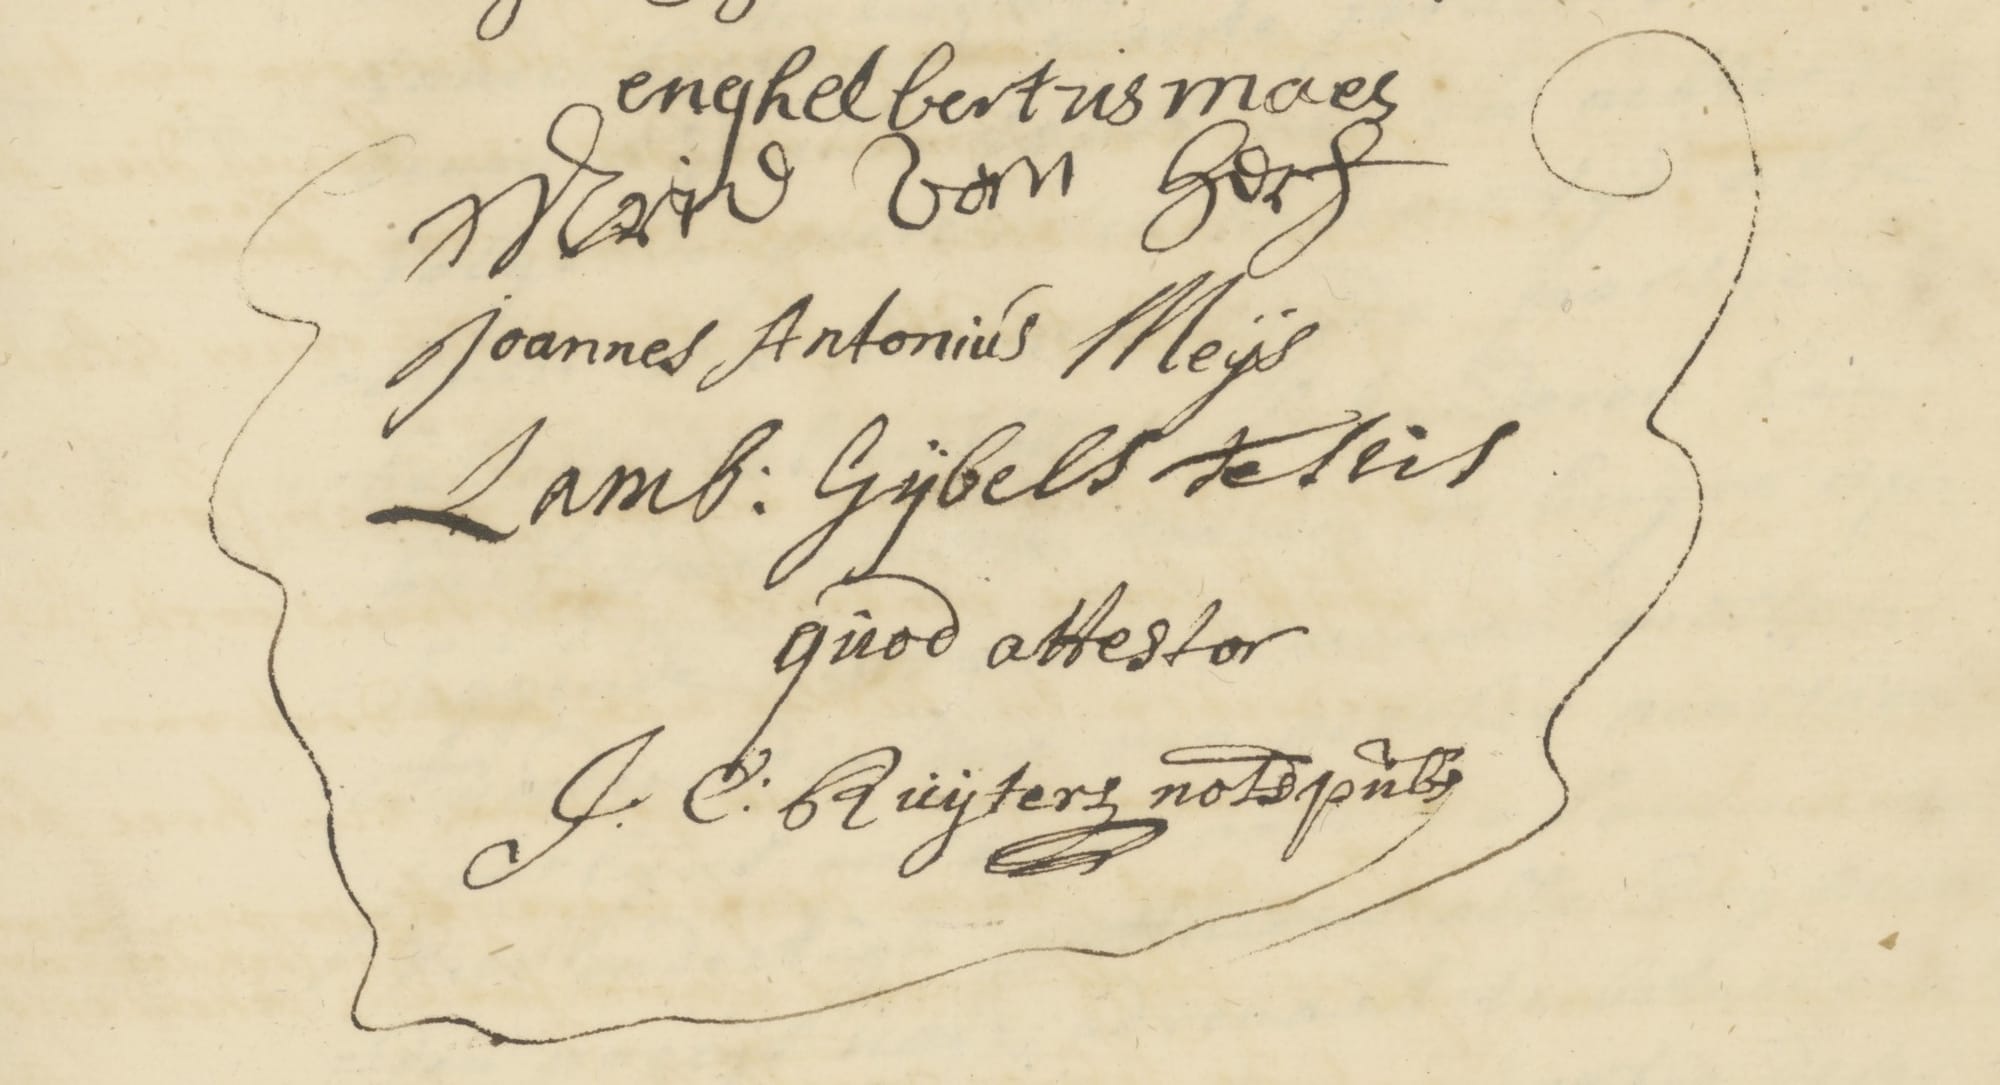 enghelbertus maes
van
Joannes Antonius Meijs
Lamb: Gijbels testis
quod attestor
J. C: Ruijters nots pubs